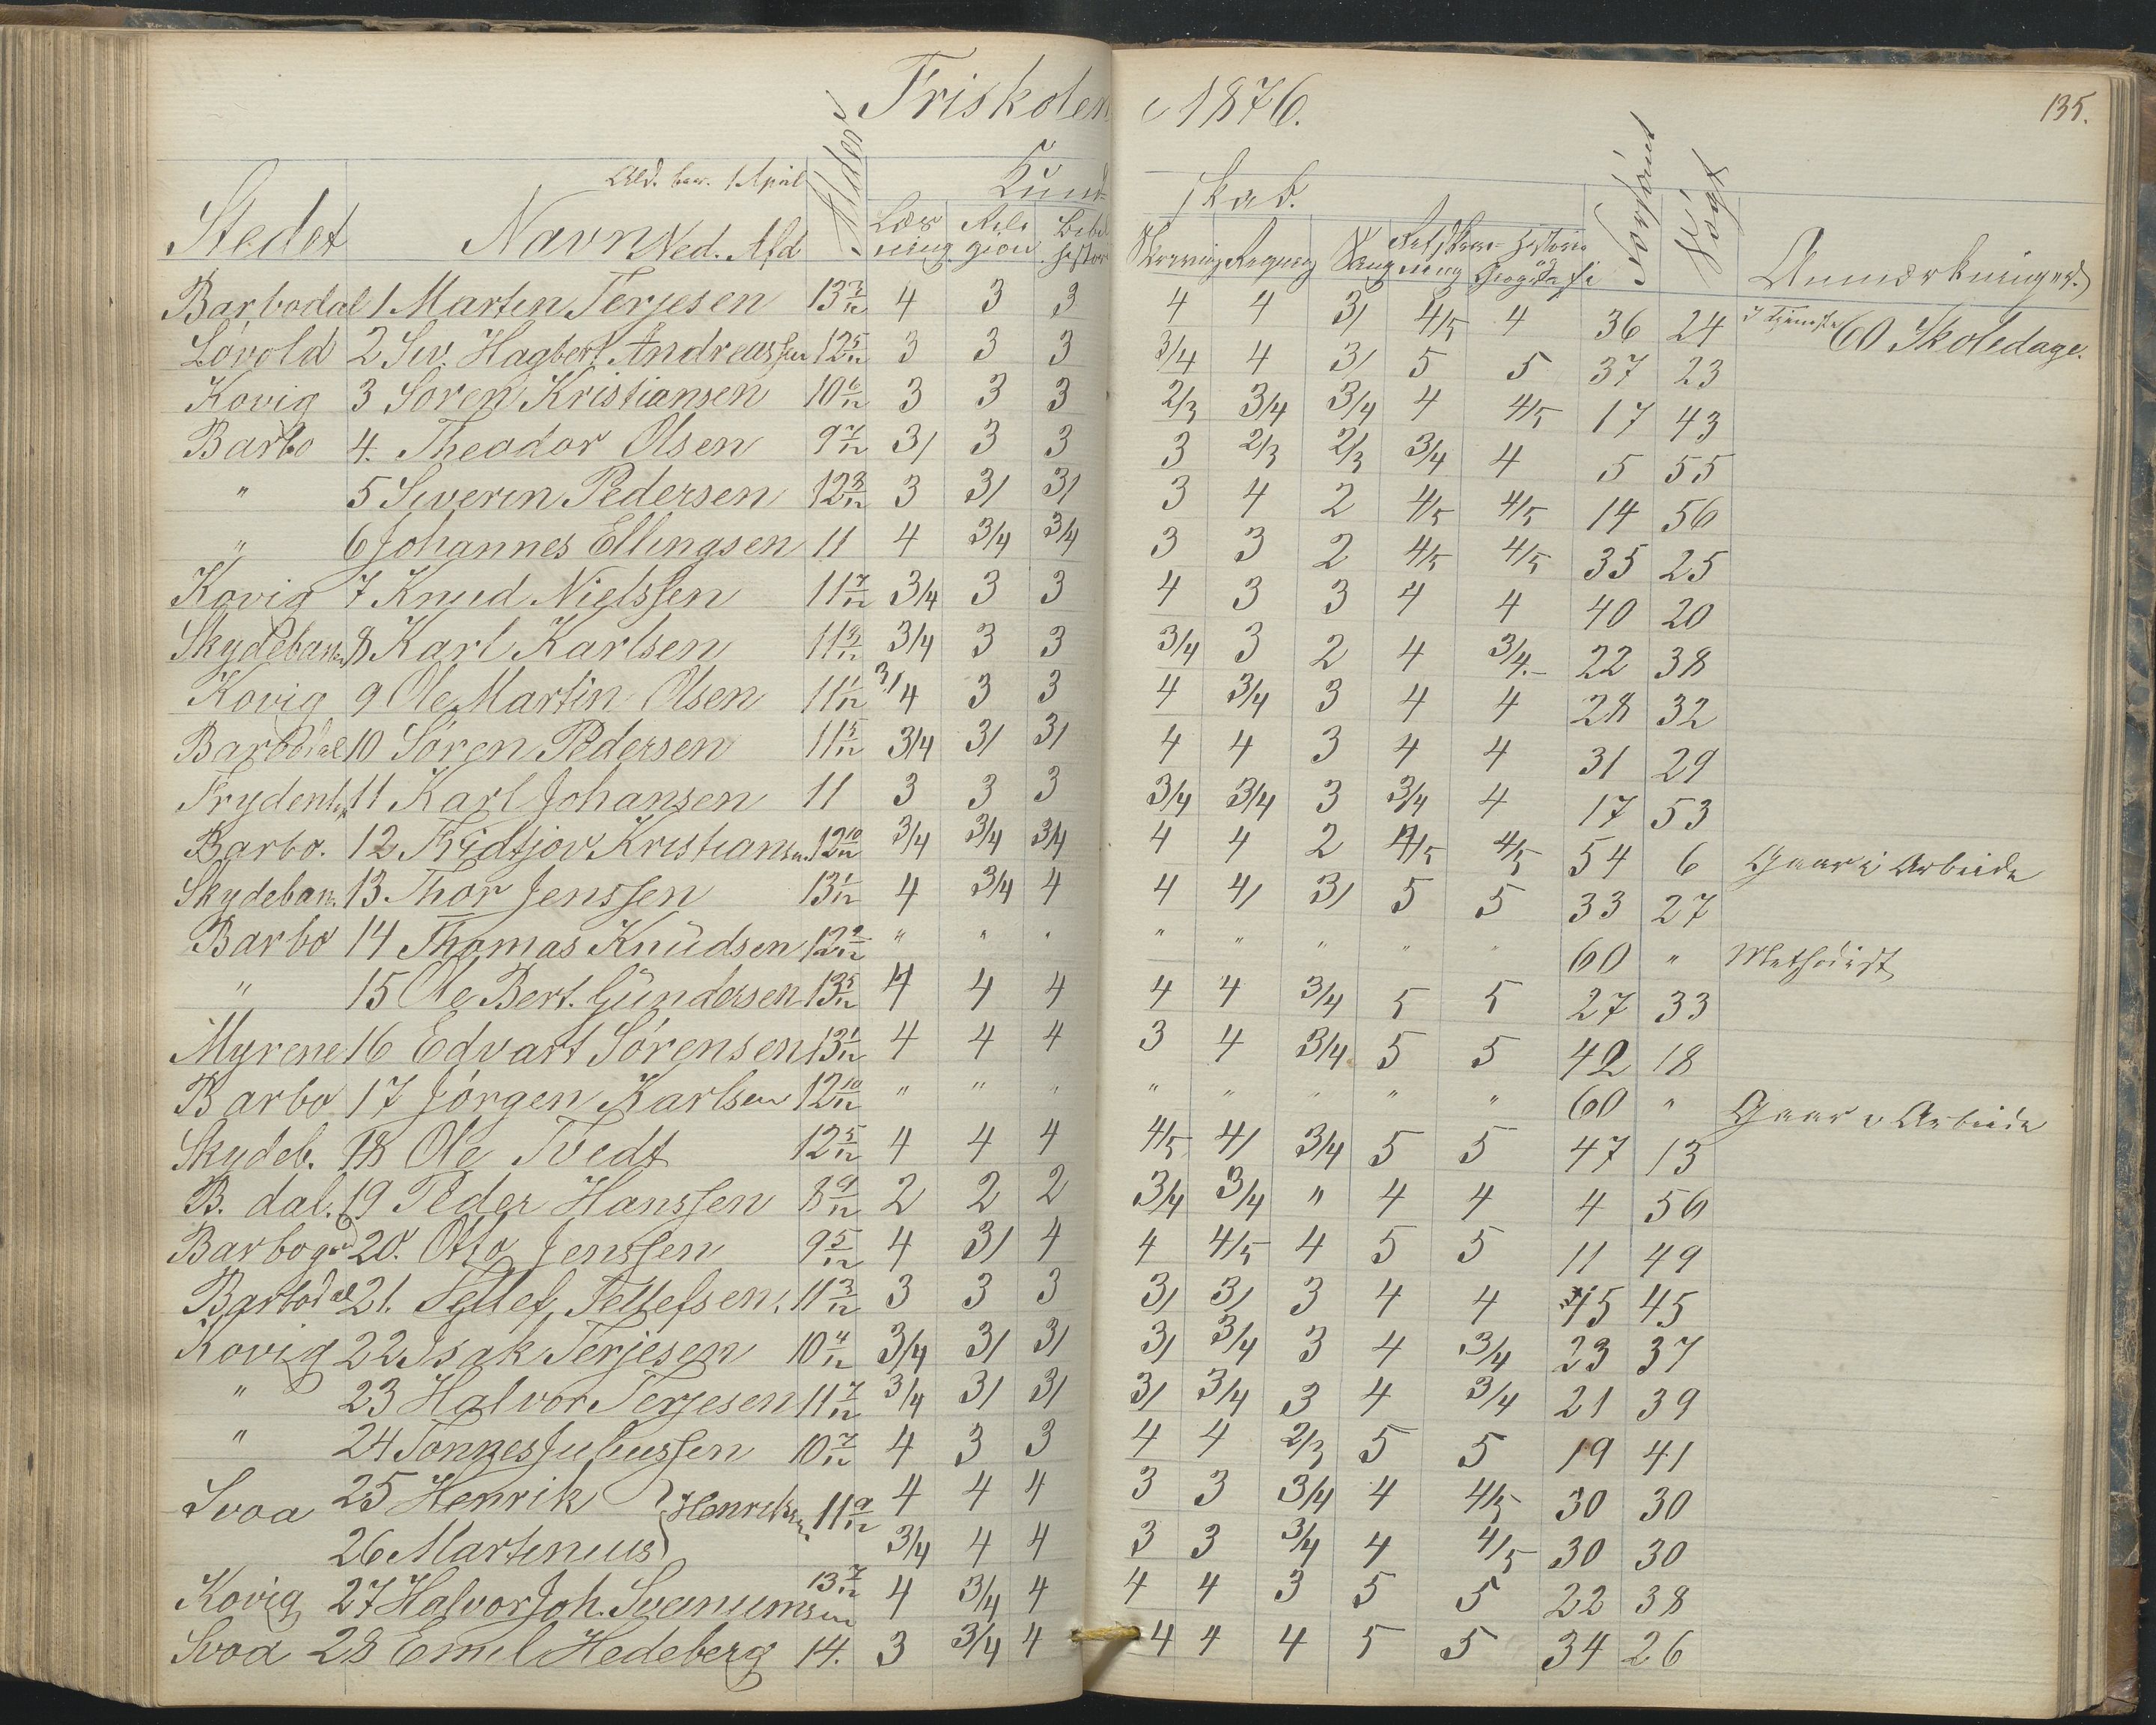 Friskolen i 1876.
135.
Ald. ber. 1 April
Alder
Kund-
skab.
Forsømt
Søgt
Stedet Navn Ned. Afd Læs ning Reli gion Bibel histori Skrivning Regning Sang Retskrivning Historie og Geografi Anmærkninger.
Barbodal 1 Martin Terjesen 13 7/12 4 3 3 4 4 3/ 4/5 4 36 24 i Tjeneste 60 Skoledage.
Løvold 2 Siv. Hagbert Andreassen 12 5/12 3 3 3 3/4 4 3/ 5 5 37 23
Kovig 3 Søren Kristiansen 10 6/12 3 3 3 2/3 3/4 3/4 4 4/5 17 43
Barbo 4. Theodor Olsen 9 7/12 3/ 3 3 3 2/3 2/3 3/4 4 5 55
" 5 Siverin Pedersen 12 8/12 3 3/ 3/ 3 4 2 4/5 4/5 14 56
" 6 Johannes Ellingsen 11 4 3/4 3/4 3 3 2 4/5 4/5 35 25
Kovig 7 Knud Nielssen 11 7/12 3/4 3 3 4 3 3 4 4 40 20
Skydebanen 8 Karl Karlsen 11 9/12 3/4 3 3 3/4 3 2 4 3/4.- 22 38
Kovig 9 Ole Martin Olsen 11 1/12 3/4 3 3 4 3/4 3 4 4 28 32
Barbodal 10 Søren Pedersen 11 5/12 3/4 3/ 3/ 4 4 3 4 4 31 29
Frydenb. 11 Karl Johansen 11 3 3 3 3/4 3/4 3 3/4 4 17 53
Barbo. 12 Fridtjov Kristiansen 12 10/12 3/4 3/4 3/4 4 4 2 4/5 4/5 54 6 Gaar i Arbeide
Skydeban. 13 Thor Jenssen 13 1/12 4 3/4 4 4 4/ 3/ 5 5 33 27
Barbo 14 Thomas Knudsen 12 9/12 " " " " " " " " 60 " Methodist
" 15 Ole Bert. Gundersen 13 5/12 4 4 4 4 4 3/4 5 5 27 33
Myrene 16 Edvart Sørensen 13 1/12 4 4 4 3 4 3/4 5 5 42 18
Barbo 17 Jørgen Karlsen 12 10/12 " " " " " " " " 60 " Gaar i Arbeide
Skydeb. 18 Ole Tvedt 12 5/12 4 4 4 4/5 4/ 3/4 5 5 47 13
B. dal. 19 Peder Hanssen 8 9/12 2 2 2 3/4 3/4 " 4 4 4 56
Barbogrd 20. Otto Jenssen 9 5/12 4 3/ 4 4 4/5 4 5 5 11 49
Barbodal 21. Tellef Tellefsen. 11 3/12 3 3 3 3/ 3/ 3 4 4 15 45
Kovig 22 Isak Terjesen 10 4/12 3/4 3/ 3/ 3/ 3/4 3 4 3/4 23 37
" 23 Halvor Terjesen 11 7/12 3/4 3/ 3/ 3/ 3/4 3 4 3/4 21 39
" 24 Tønnes Juliussen 10 7/12 4 3 3 4 4 2/3 5 5 19 41
Svoa 25 Henrik } Henriksen 11 9/12 4 4 4 3 3 3/4 4 4/5 30 30
26 Martinius 3/4 4 4 3 3 3/4 4 4/5 30 30
Kovig 27 Halvor Joh. Svenumsen 13 7/12 4 3/4 4 4 4 3 5 5 22 38
Svoa 28 Emil Hedeberg 14. 3 3/4 4 4 4 4 5 5 34 26